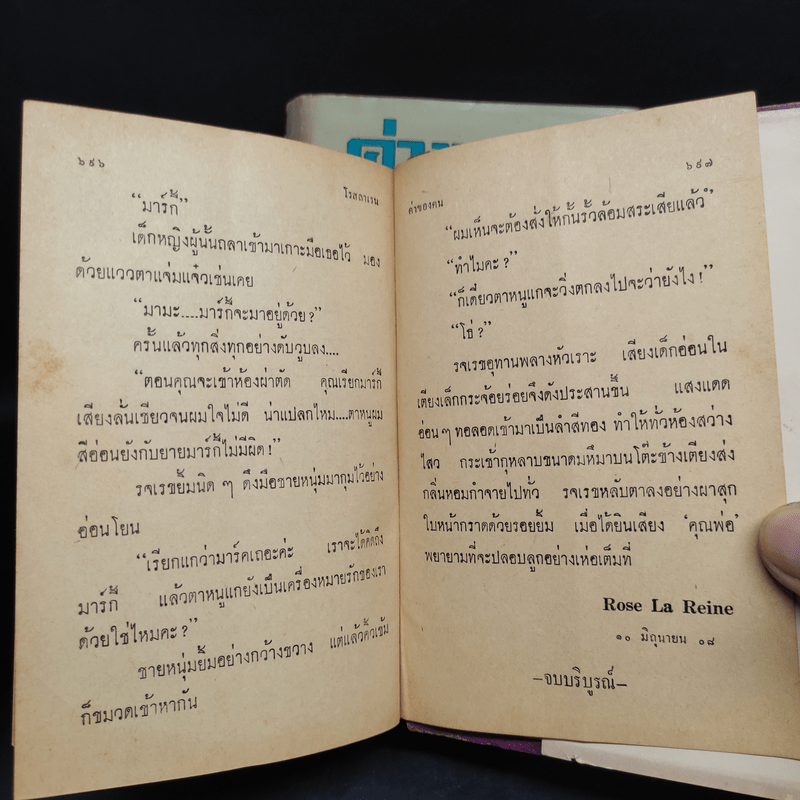 ค่าข
๖๙๖
โรสลาเรน
“มาร์กี้”
เด็กหญิงผู้นั้นถลาเข้ามาเกาะมือเธอไว้ มอง
ด้วยแววตาแจ่มแจ๋วเช่นเคย
“มามะ....มาร์กี้จะมาอยู่ด้วย?”
ครั้นแล้วทุกสิ่งทุกอย่างดับวูบลง....
“ตอนคุณจะเข้าห้องผ่าตัด คุณเรียกมาร์กี้
เสียงลั่นเชียวจนผมใจไม่ดี น่าแปลกไหม....ตาหนูผม
สีอ่อนยังกับยายมาร์กี้ไม่มีผิด!”
รจเรขยิ้มนิด ๆ ดึงมือชายหนุ่มมากุมไว้อย่าง
อ่อนโยน
“เรียกแกว่ามาร์คเถอะค่ะ เราจะได้คิดถึง
มาร์กี้ แล้วตาหนูแกยังเป็นเครื่องหมายรักของเรา
ด้วยใช่ไหมคะ?”
ชายหนุ่มยิ้มอย่างกว้างขวาง แต่แล้วคิ้วเข้ม
ก็ขมวดเข้าหากัน
๖๙๗
ค่าของคน
“ผมเห็นจะต้องสั่งให้กั้นรั้วล้อมสระเสียแล้ว”
“ทำไมคะ?”
“ก็เดี๋ยวตาหนูแกจะวิ่งตกลงไปจะว่ายังไง!”
“โธ่?”
รจเรขอุทานพลางหัวเราะ เสียงเด็กอ่อนใน
เตียงเล็กกระจ้อยร่อยจึงดังประสานขึ้น แสงแดด
อ่อน ๆ ทอลอดเข้ามาเป็นลำสีทอง ทำให้ทั่วห้องสว่าง
ไสว กระเช้ากุหลาบขนาดมหึมาบนโต๊ะข้างเตียงส่ง
กลิ่นหอมกำจายไปทั่ว รจเรขหลับตาลงอย่างผาสุก
ใบหน้ากราดด้วยรอยยิ้ม เมื่อได้ยินเสียง ‘คุณพ่อ’
พยายามที่จะปลอบลูกอย่างเห่อเต็มที่
Rose La Reine
๑๐ มิถุนายน ๐๘
–จบบริบูรณ์–